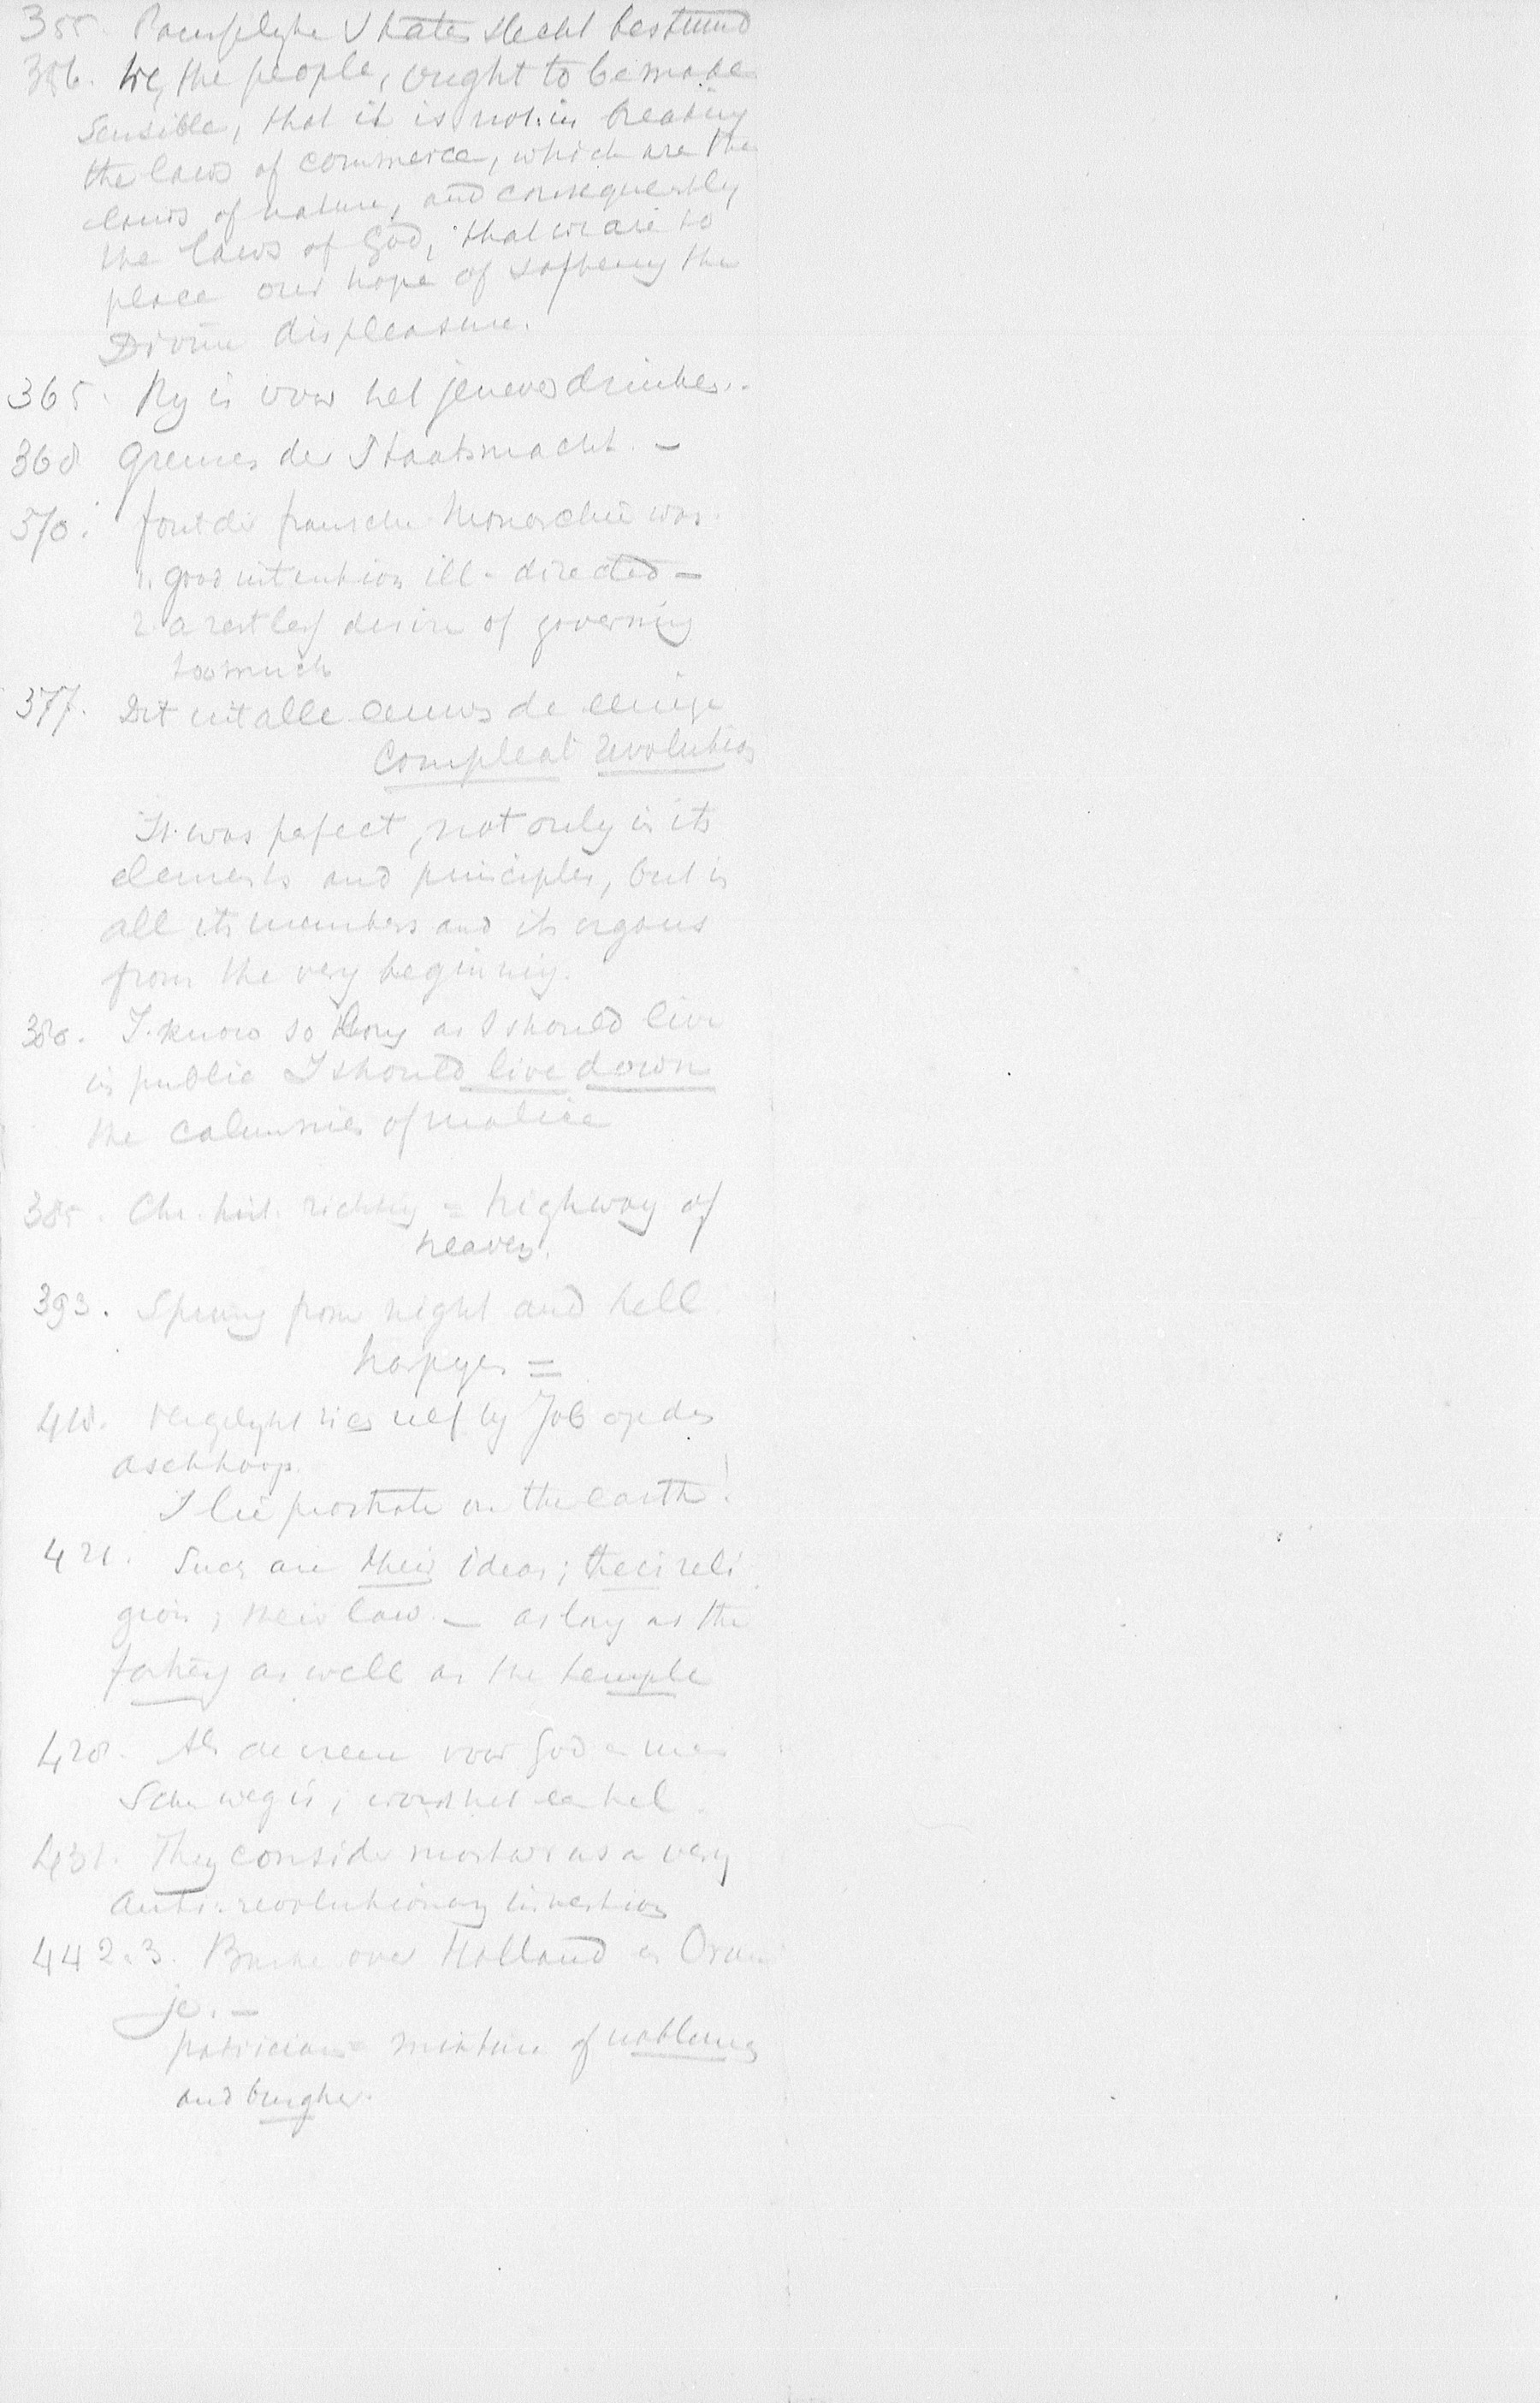 355. Pauselyke States slecht bestuurd
356. We, the people, ought to be made
sensible, that it is not in breaking
the laws of commerce, which are the
laws of nature, and consequently
the laws of God, that we are to
place our hope of softening the
Divine displeasure.
365. Hy is voor het jenever drinken.
368 Grenzen der Staatsmacht. —
370. fout der fransche Monarchie was
1. good intention ill-directed —
2 a restless desire of governing
too much
377. Dit uit alle eeuwen de eenige
compleat revolution
It was perfect, not only in its
elements and principles, but in
all its members and its organs
from the very beginning.
380. I know so long as I should live
in public I should live down
the calumnies of malice
385. Chr. hist. richting = highway of
heaven.
393. Sprung from night and hell
harpyes =
418. Vergelykt zich zelf by Job op den
aschhoop.
I lie prostrate on the earth!
421. Such are their ideas; their reli
gion, their law — as long as the
as well as the temple
428. Als de vreeze voor God en men
sche weg is, wordt het een hel.
431. They consider mortar as a very
anti-revolutionary invention
442.3. Burke over Holland en Oran
je. —
patrician = mixture of nobleman
and burgher.